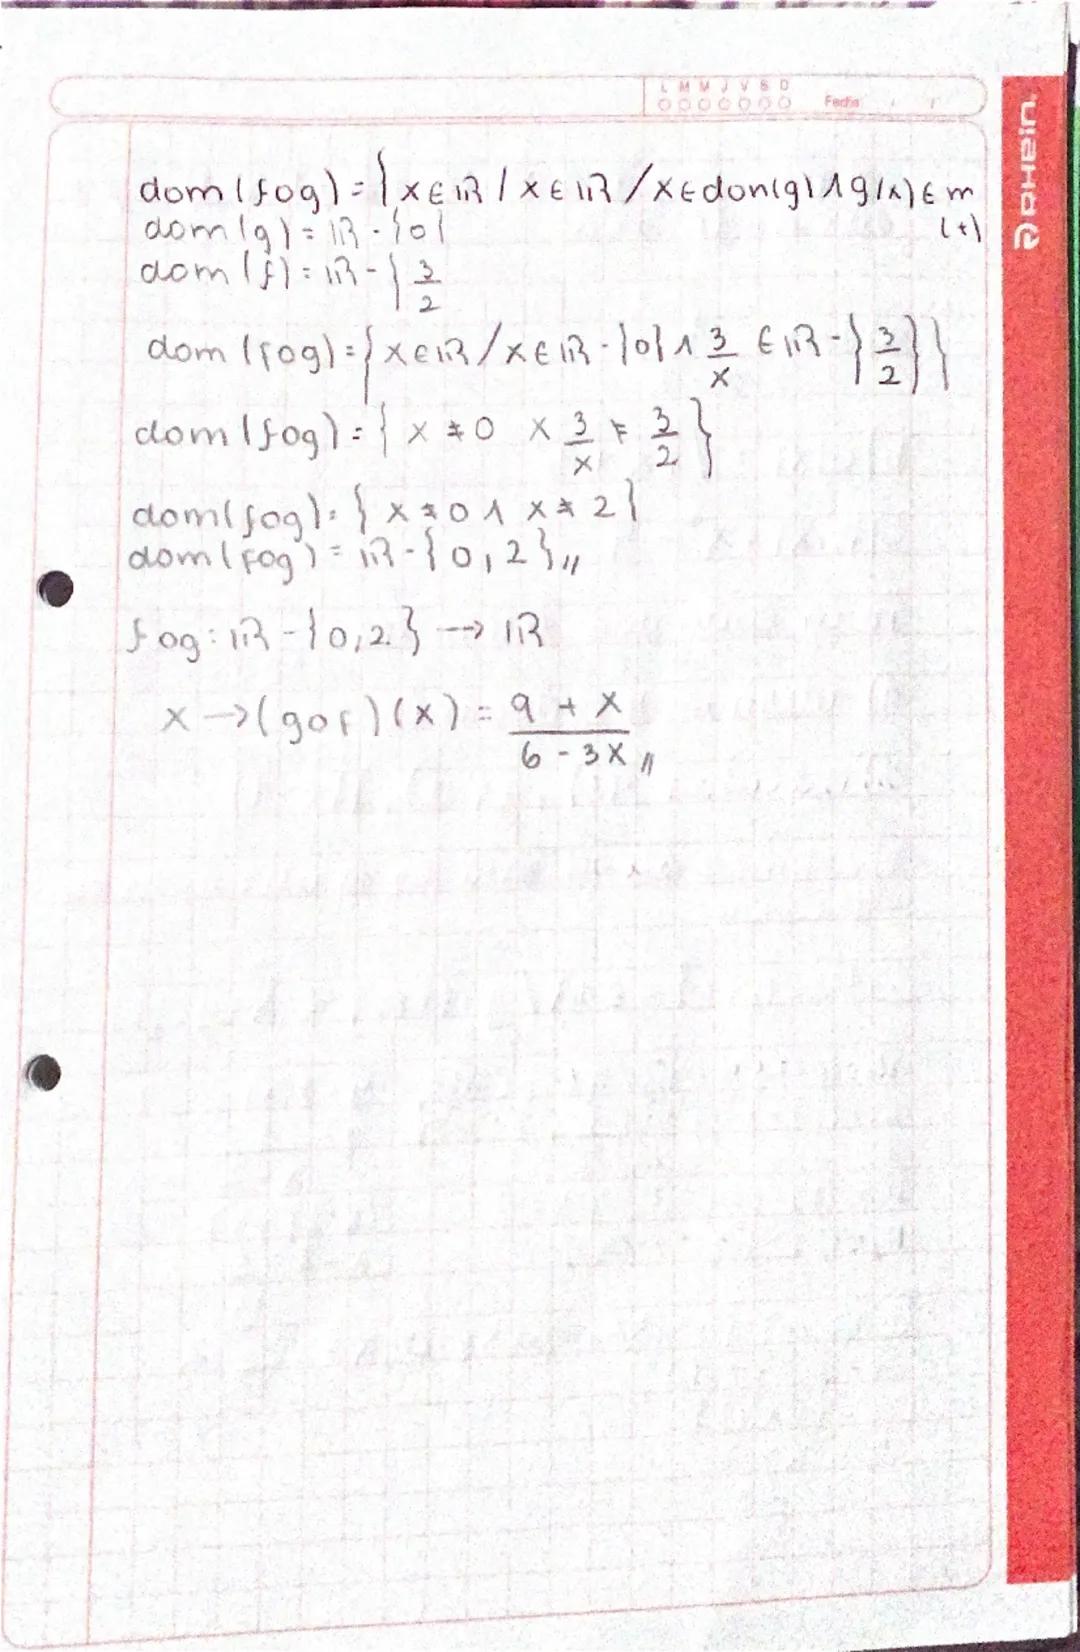 L M M J V S D
Fecha
RHEIN.
dom(fog)={x∈ℝ/x∈ℝ/x∈don(g)∧g(x)∈m
(+)
dom(g)=ℝ-{0{
dom(f)=ℝ-{3/2
dom(fog)={x∈ℝ/x∈ℝ-{0{∧3/x∈ℝ-{3/2}}
dom(fog)={x≠0 x 3/x≠3/2}
dom(fog)={x≠0∧x≠2}
dom(fog)=ℝ-{0,2}//
fog:ℝ-{0,2}→ℝ
x→(gof)(x)=9+x/6-3x//